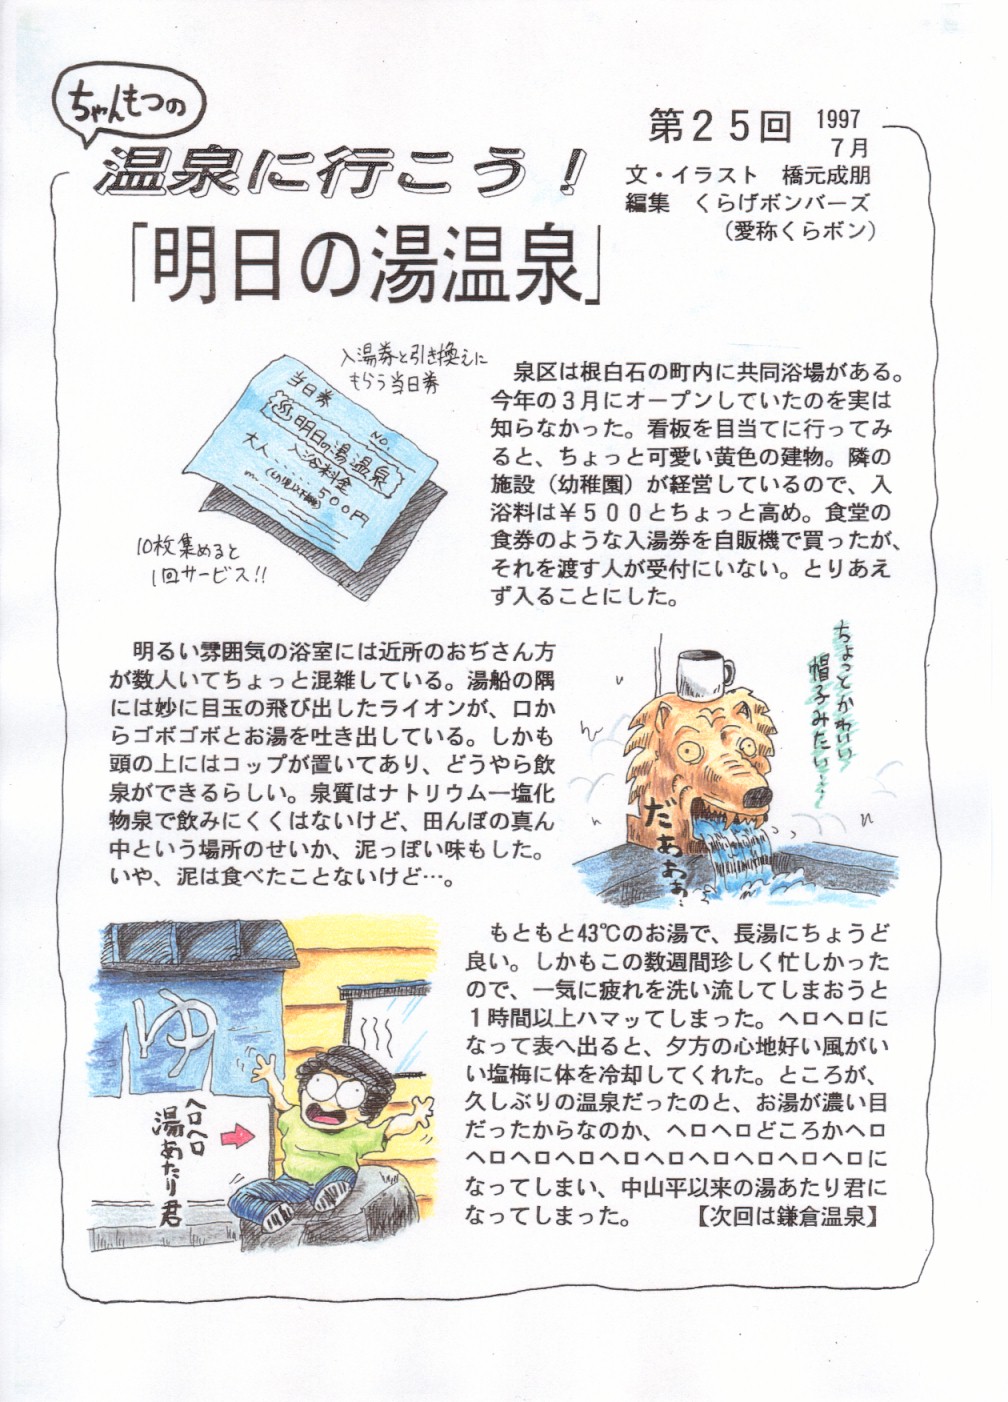 ちゃんもつの
温泉に行こう！
第２５回 1997
７月
文・イラスト　橋元成朋
編集　くらげボンバーズ
（愛称くらボン）
「明日の湯温泉」
入湯券と引き換えに
もらう当日券
当日券
NO.
明日の湯温泉
入浴料金
大人....５００円
10枚集めると
1回サービス!!
泉区は根白石の町内に共同浴場がある。
今年の３月にオープンしていたのを実は
知らなかった。看板を目当てに行ってみ
ると、ちょっと可愛い黄色の建物。隣の
施設（幼稚園）が経営しているので、入
浴料は￥５００とちょっと高め。食堂の
食券のような入湯券を自販機で買ったが、
それを渡す人が受付にいない。とりあえ
ず入ることにした。
明るい雰囲気の浴室には近所のおぢさん方
が数人いてちょっと混雑している。湯船の隅
には妙に目玉の飛び出したライオンが、口か
らゴボゴボとお湯を吐き出している。しかも
頭の上にはコップが置いてあり、どうやら飲
泉ができるらしい。泉質はナトリウム―塩化
物泉で飲みにくくはないけど、田んぼの真ん
中という場所のせいか、泥っぽい味もした。
いや、泥は食べたことないけど…。
ちょっとかわいい
帽子みたい…
だぁぁぁ
もともと43℃のお湯で、長湯にちょうど
良い。しかもこの数週間珍しく忙しかった
ので、一気に疲れを洗い流してしまおうと
１時間以上ハマッてしまった。ヘロヘロに
なって表へ出ると、夕方の心地好い風がい
い塩梅に体を冷却してくれた。ところが、
久しぶりの温泉だったのと、お湯が濃い目
だったからなのか、ヘロヘロどころかヘロ
ヘロヘロヘロヘロヘロヘロヘロヘロヘロに
なってしまい、中山平以来の湯あたり君に
なってしまった。　【次回は鎌倉温泉】
ゆ
ヘロヘロ
湯あたり君